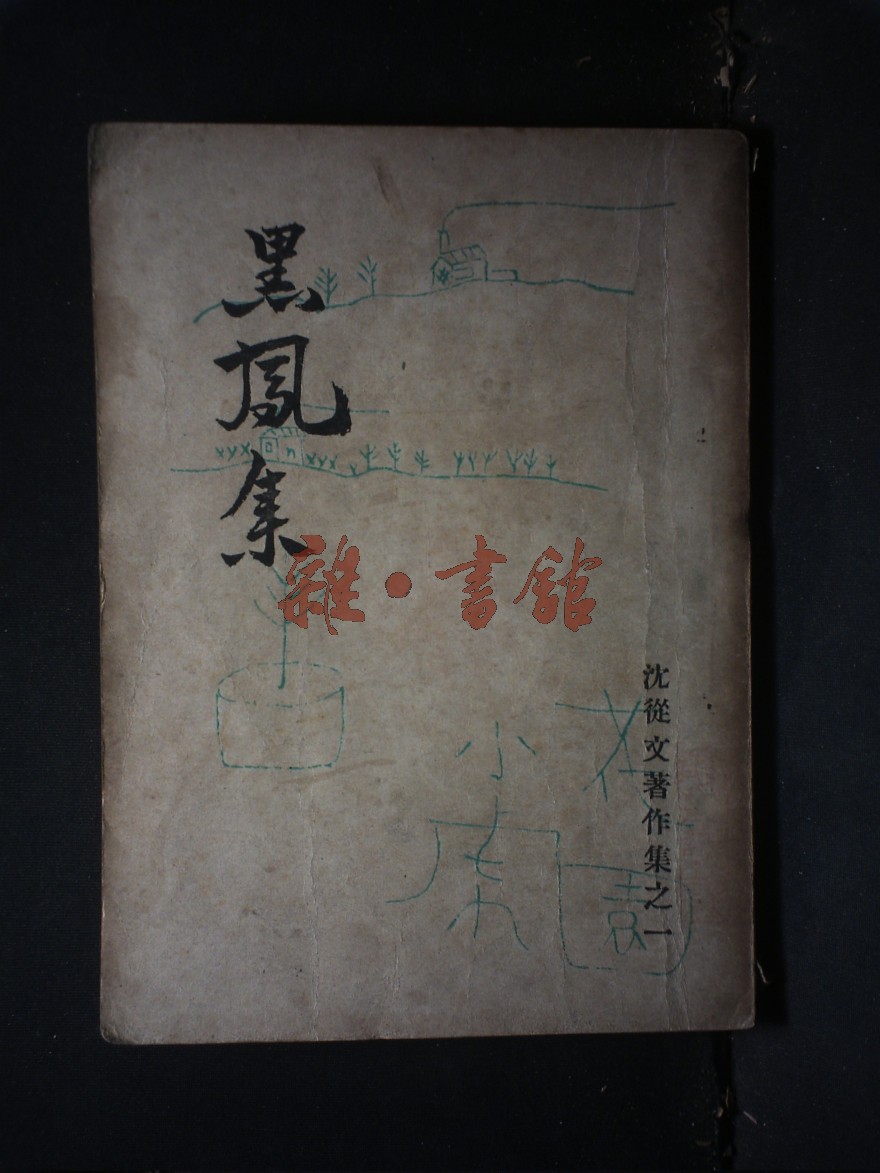 黑鳳集
雜·書館
沈從文著作集之一
園
小